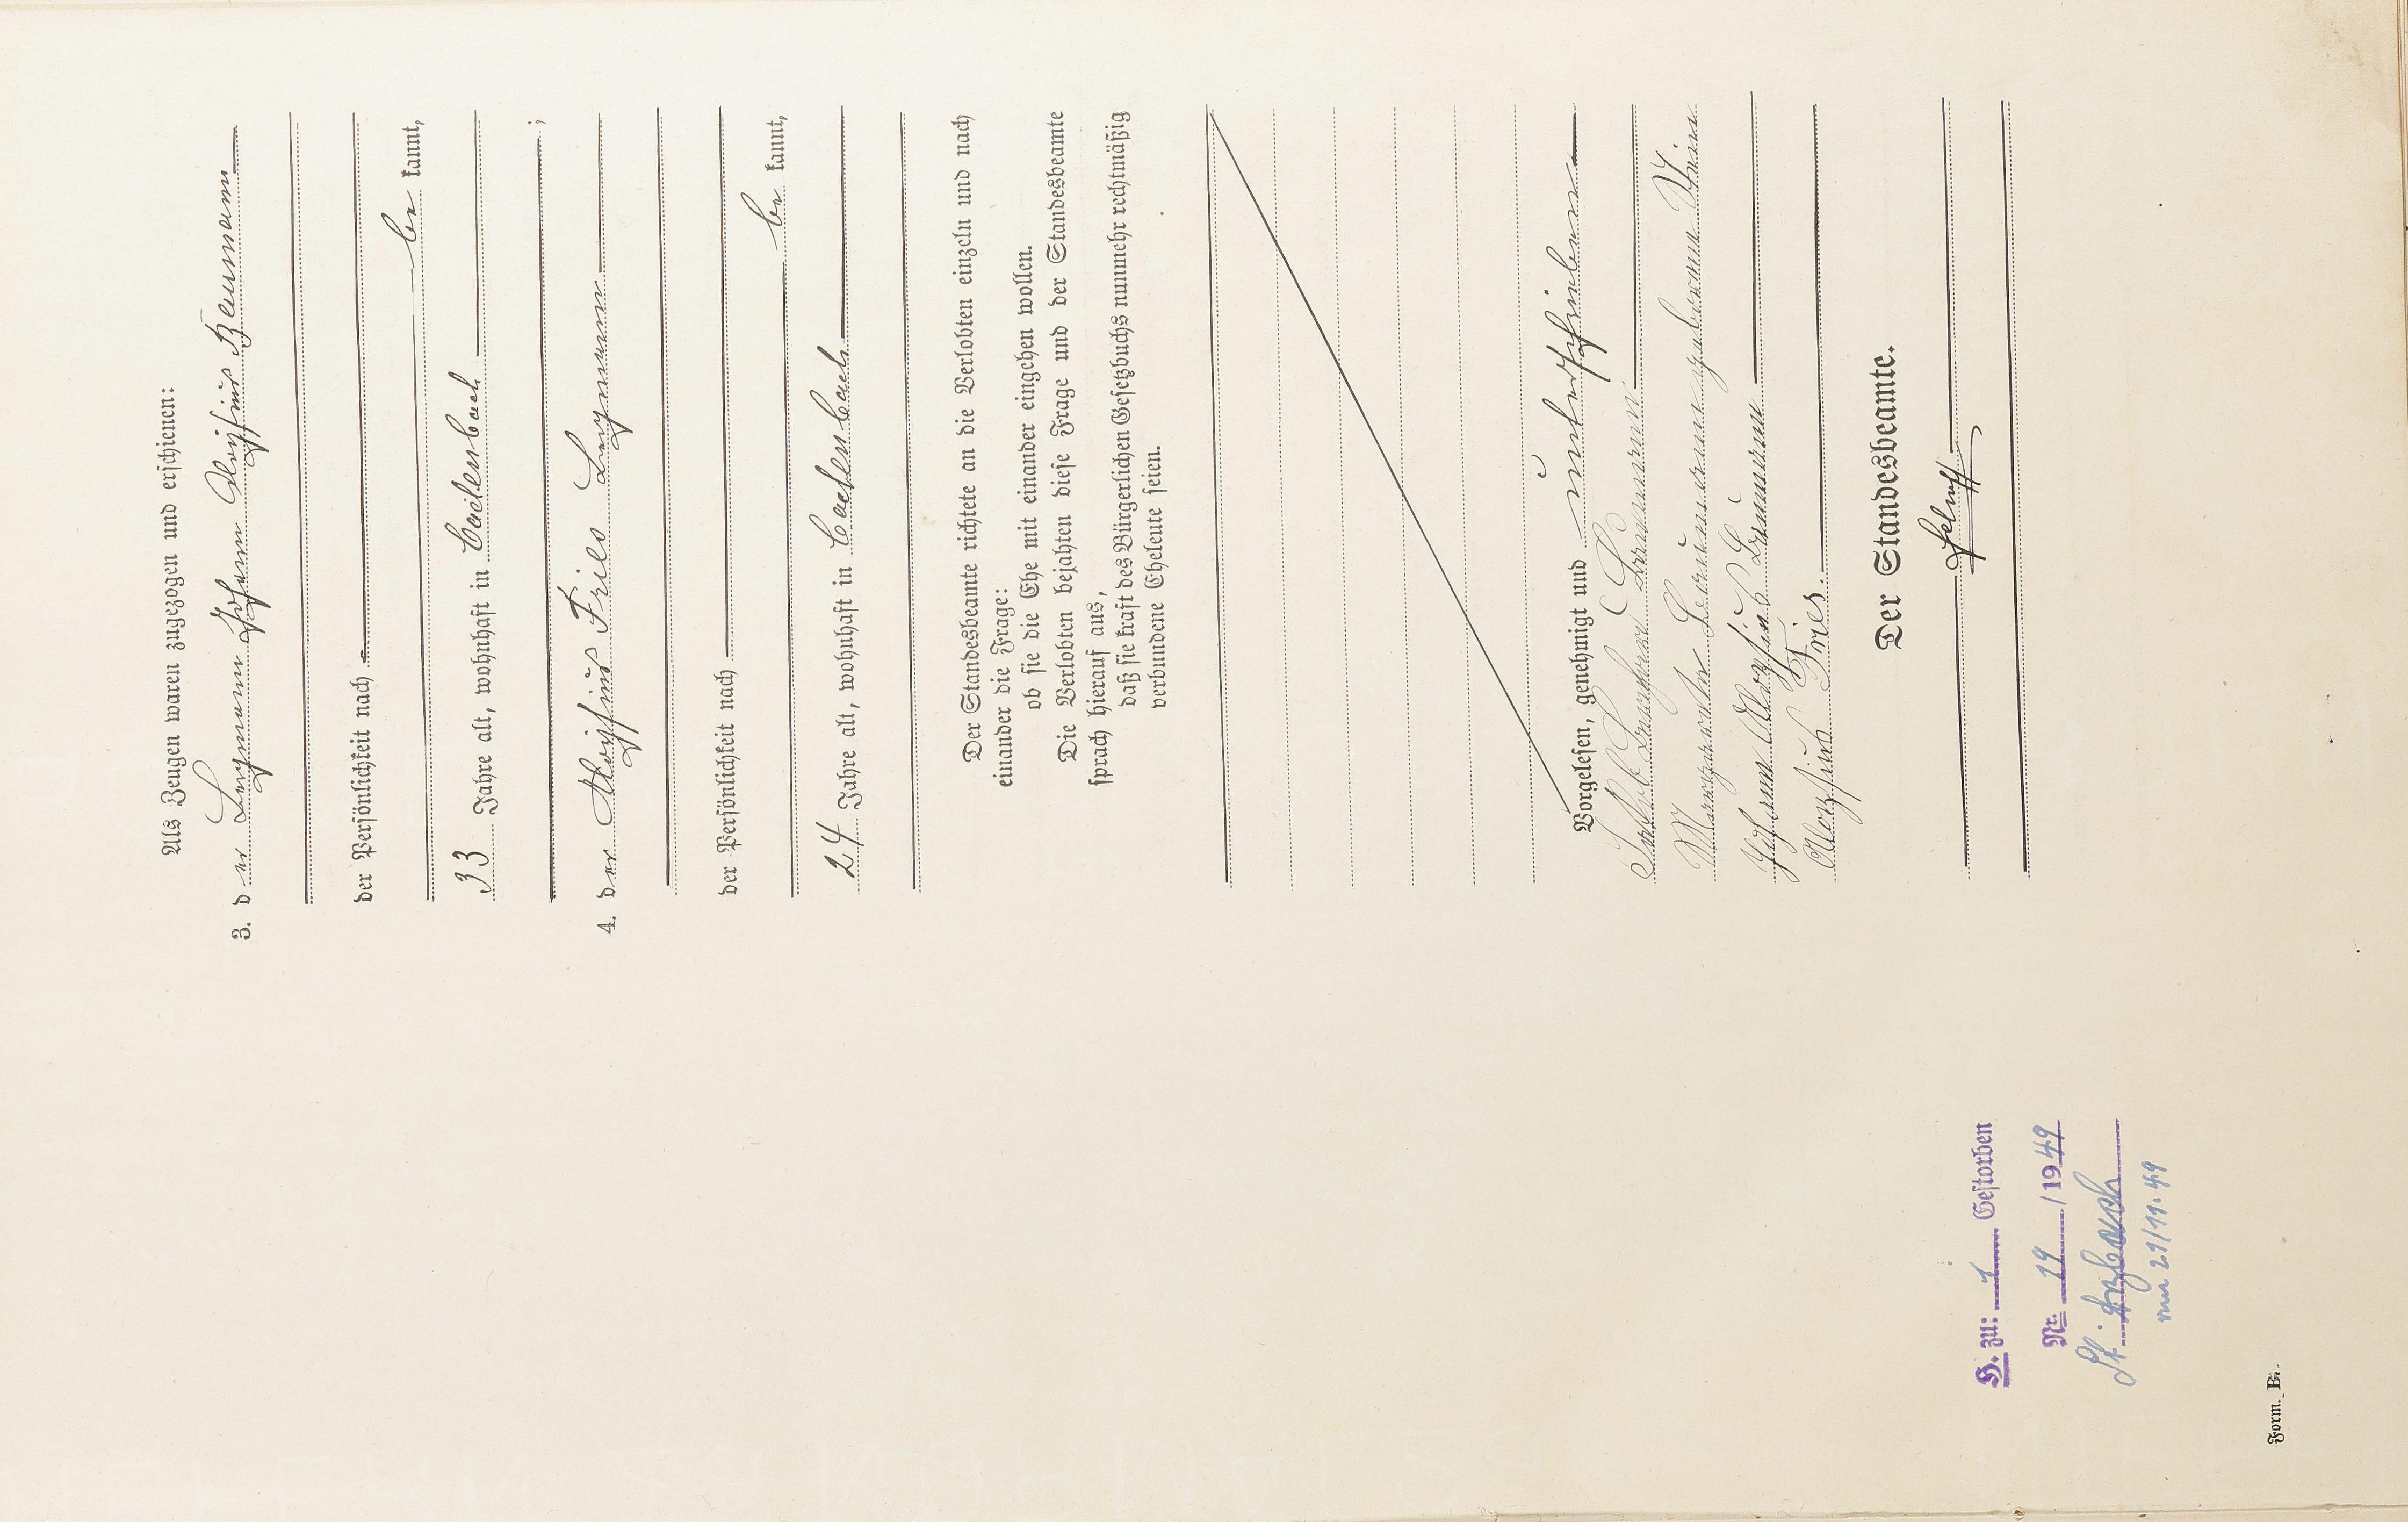 Als Zeugen waren zugezogen und erschienen:
3. der Bergmann Johann Aloysius Baumann
der Persönlichkeit nach
be kannt,
33 Jahre alt, wohnhaft in Cadenbach
;
4. der Aloysius Fries Bergmann
der Persönlichkeit nach
be kannt,
24 Jahre alt, wohnhaft in Cadenbach
Der Standesbeamte richtete an die Verlobten einzeln und nach
einander die Frage:
ob sie die Ehe mit einander eingehen wollen.
Die Verlobten bejahten diese Frage und der Standesbeamte
sprach hierauf aus,
daß sie kraft des Bürgerlichen Gesetzbuchs nunmehr rechtmäßig
verbundene Eheleute seien.
Vorgelesen, genehmigt und unterschrieben
Baumann
Margaretha Baumann geborene
Johann Aloysius Baumann
Aloysius Fries.
Der Standesbeamte.
H. zu: 1 Gestorben
Nr. 19 /1949
St. Arzbach
vom 21/11.49
Form. B.